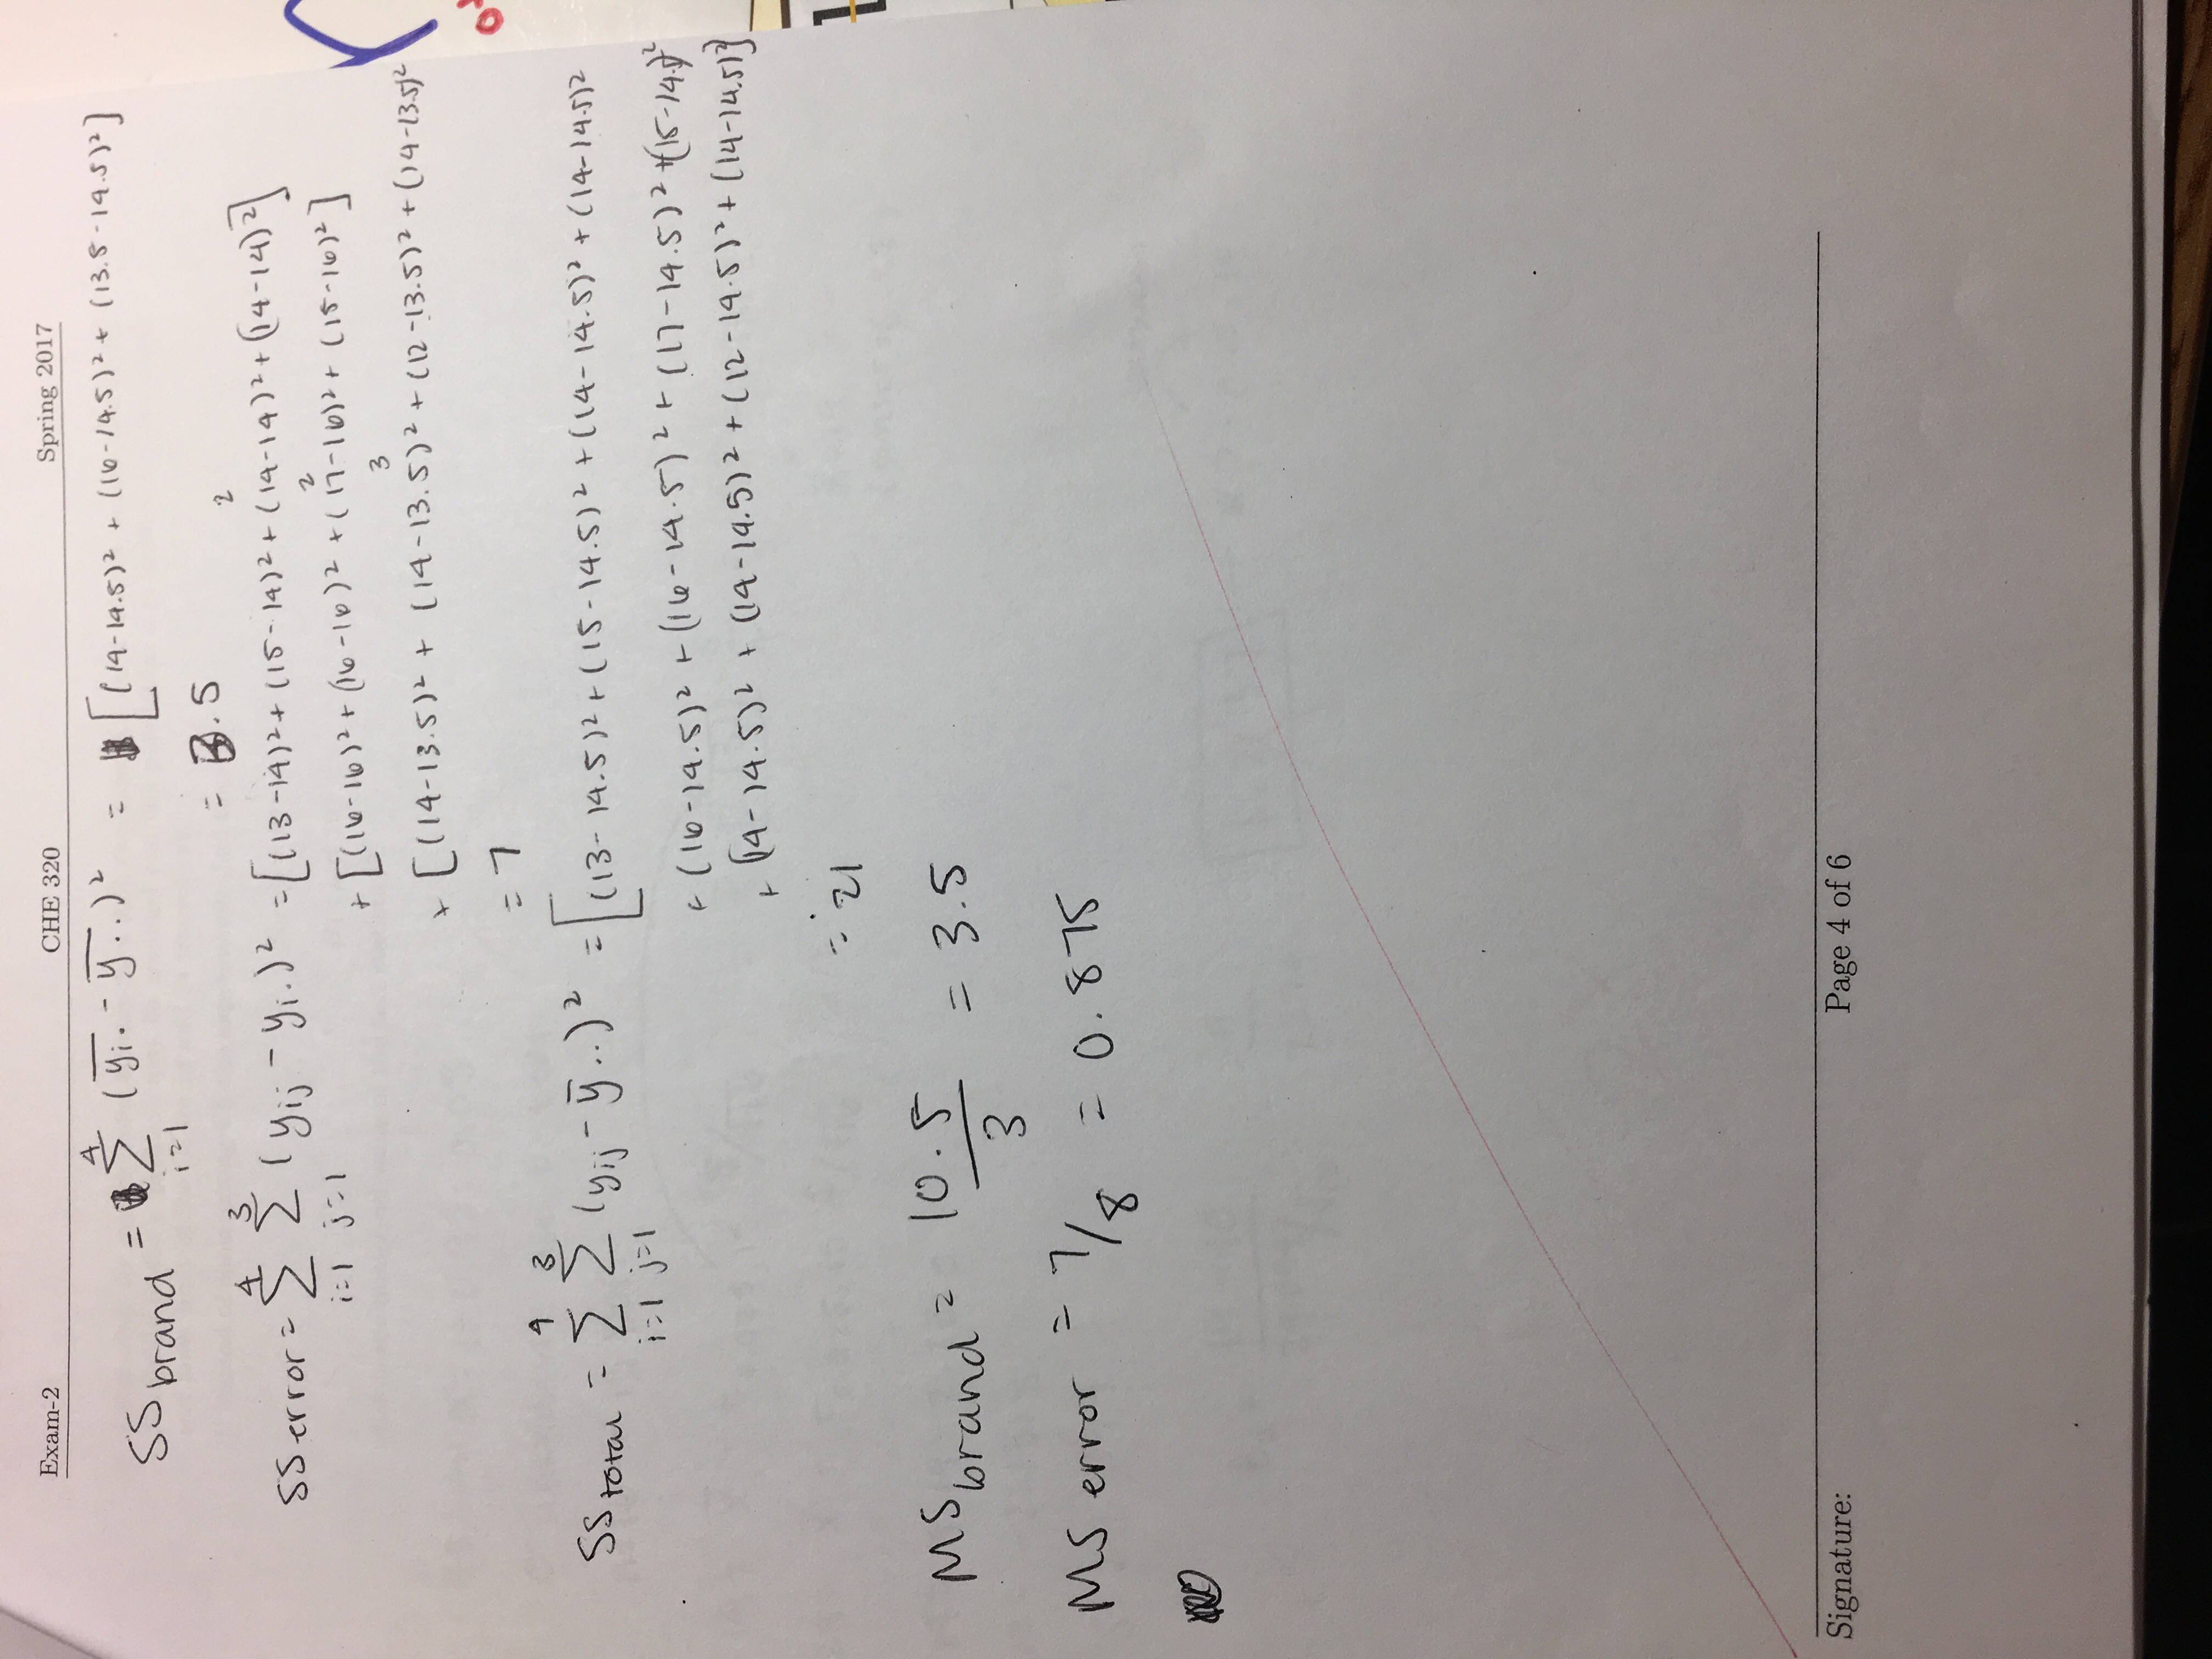 Exam-2 CHE 320 Spring 2017
SS brand = 4 Σ i=1 (ȳi. - ȳ..)² = [(14-14.5)² + (16-14.5)² + (13.5-14.5)²]
= 3.5
SS error = 4 Σ i=1 3 Σ j=1 (yij - yi.)² = [(13-14)² + (15-14)² + (14-14)² + (14-14)²] 2
+ [(16-16)² + (16-16)² + (17-16)² + (15-16)²] 2
+ [(14-13.5)² + (14-13.5)² + (12-13.5)² + (14-13.5)² 3
= 7
SS total = 4 Σ i=1 3 Σ j=1 (yij - ȳ..)² = [(13-14.5)² + (15-14.5)² + (14-14.5)² + (14-14.5)²
+ (16-14.5)² + (16-14.5)² + (17-14.5)² + (15-14.5)²
+ (14-14.5)² + (14-14.5)² + (12-14.5)² + (14-14.5)²]
= 21
MS brand = 10.5/3 = 3.5
MS error = 7/8 = 0.875
Signature: Page 4 of 6